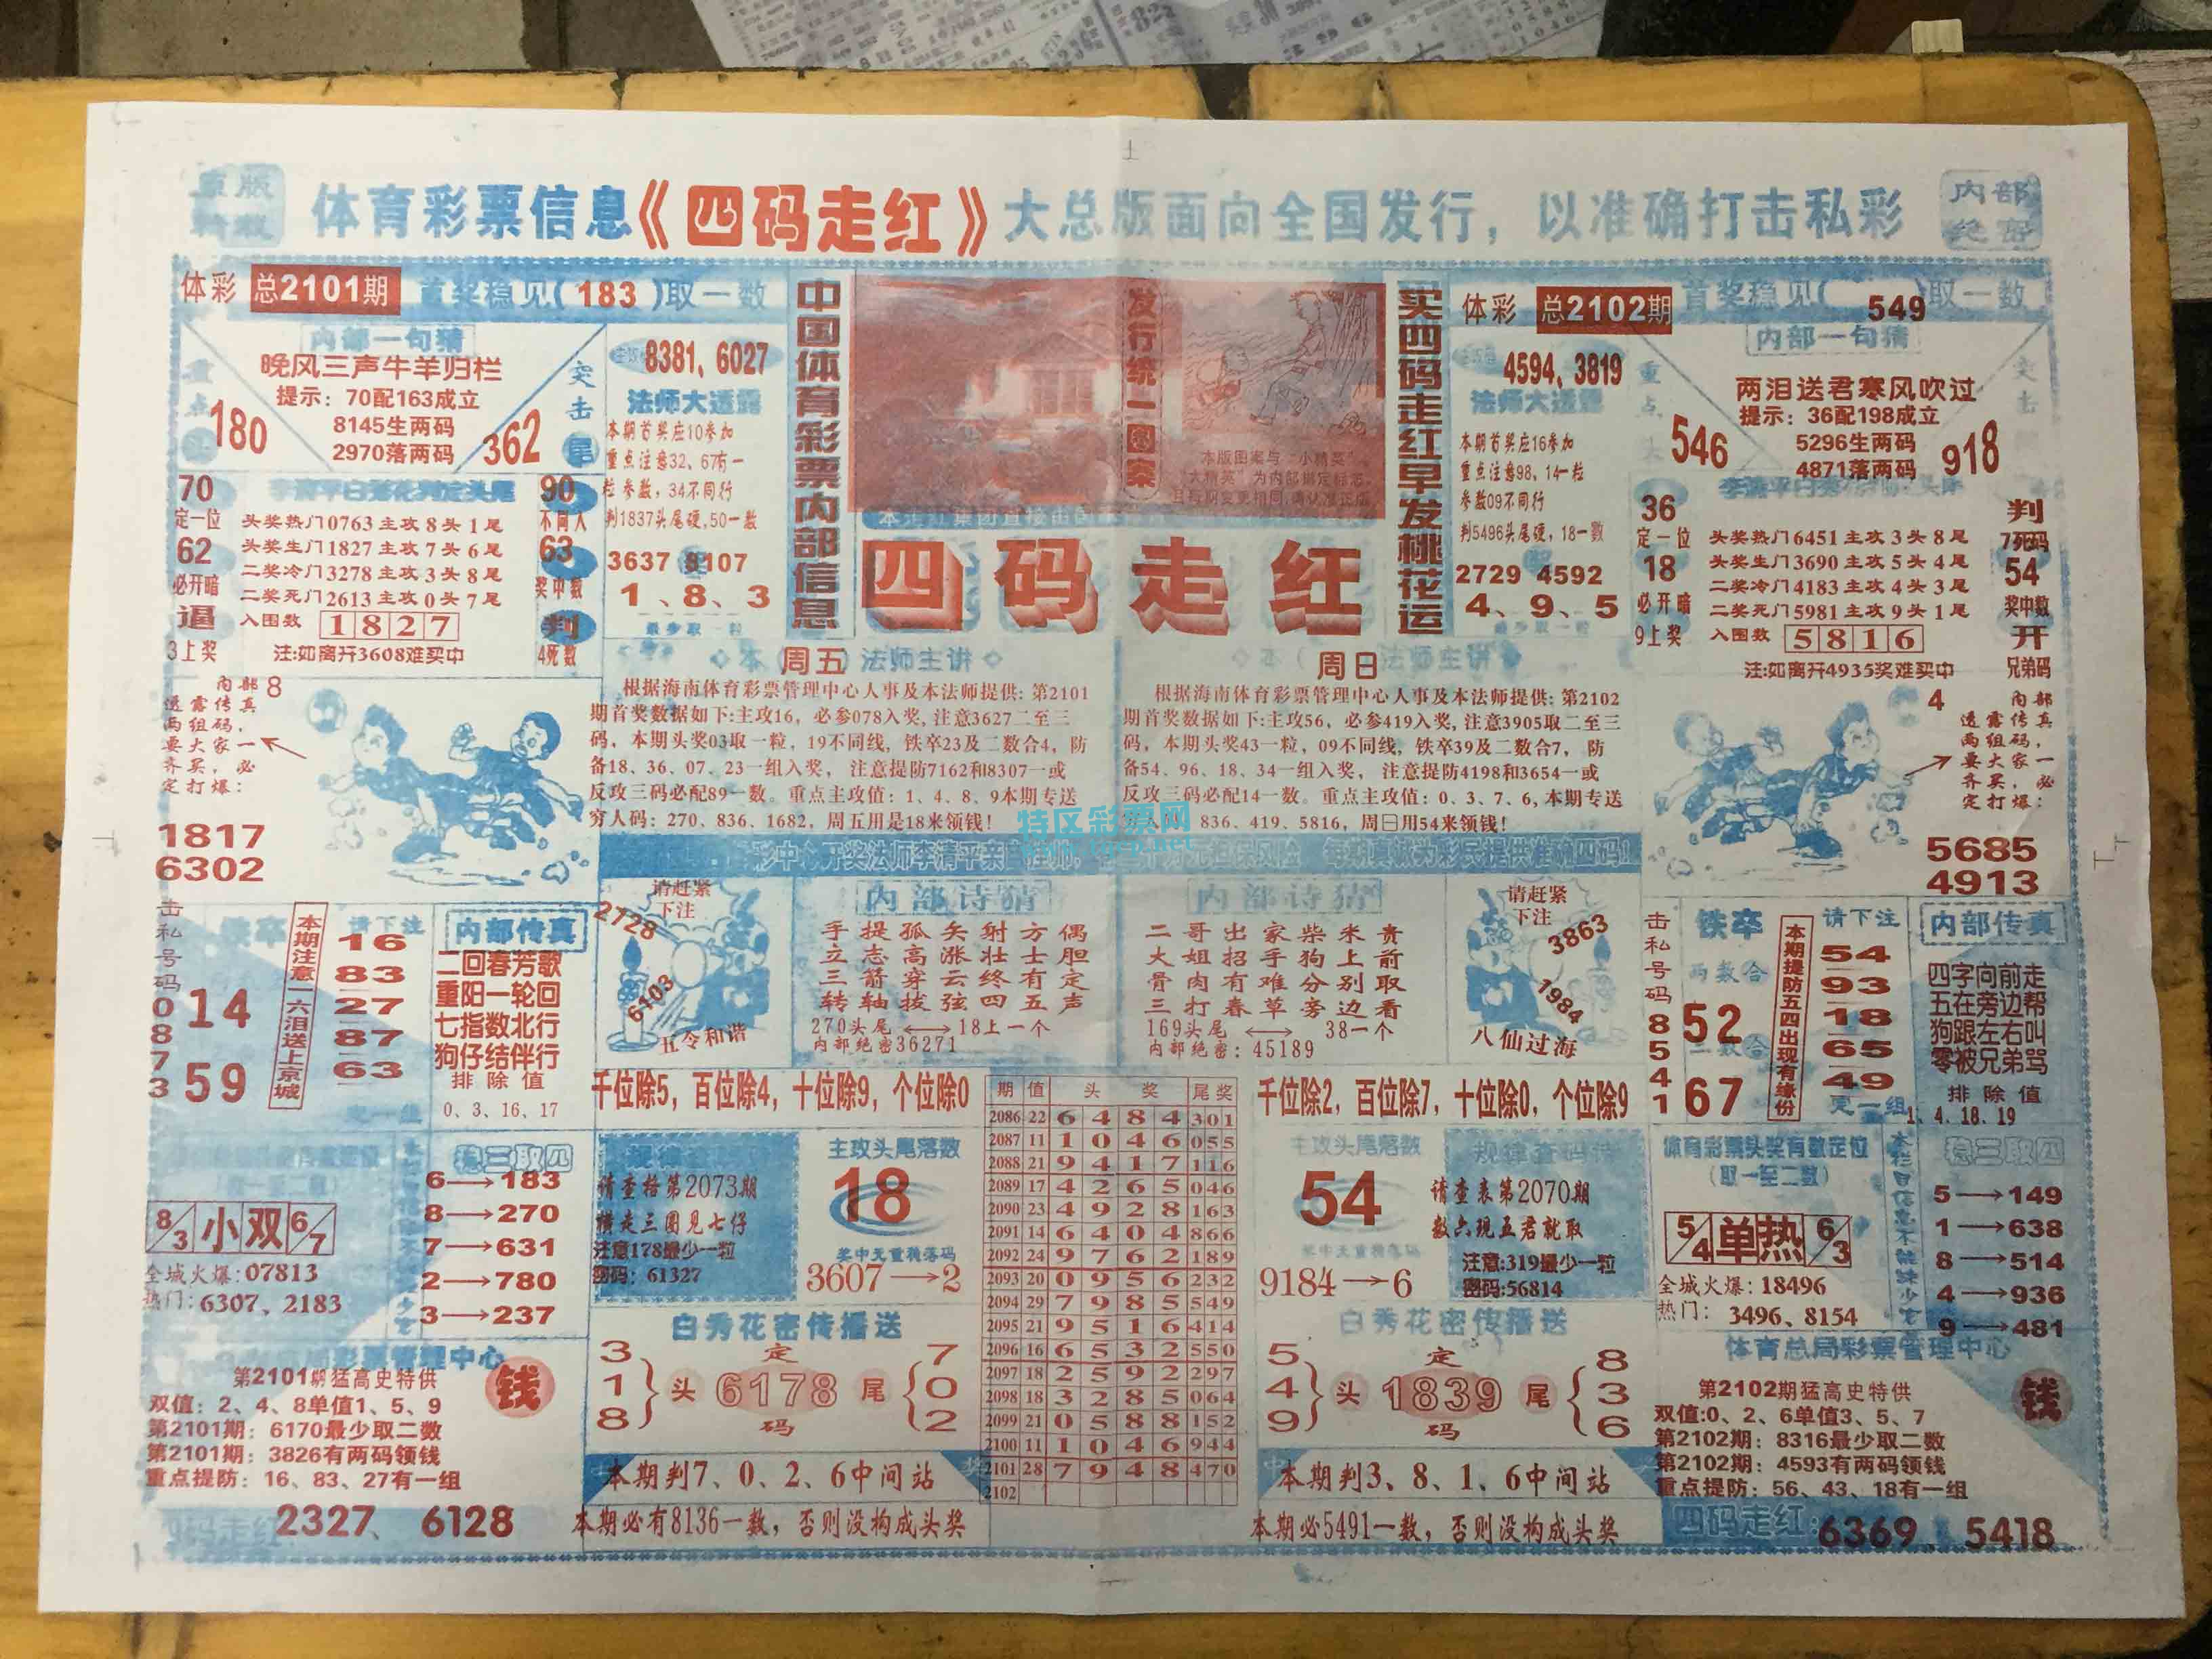 体育彩票信息《四码走红》大总版面向全国发行，以准确打击私彩
内部
体彩 总2101期 首奖稳见(183)取一数
内部一句猜
晚风三声牛羊归栏
提示：70配163成立
8145生两码
2970落两码
180
362
突击尾
8381、6027
法师大透露
本期首奖应10参加
重点注意32、67有一
粒参数，34不同行
判1837头尾硬，50一数
3637 8107
1、8、3
最少取一粒
70
定一位
62
必开暗
逼
3上奖
头奖热门0763主攻8头1尾
头奖生门1827主攻7头6尾
二奖冷门3278主攻3头8尾
二奖死门2613主攻0头7尾
入围数 1827
注:如离开3608难买中
90
不同人
63
奖中数
判
4死数
中国体育彩票内部信息
发行统一图案
本版图案与“小精英”
“大精英”为内部绑定标志，
四码走红
买四码走红早发桃花运
体彩 总2102期 首奖稳见( 549 取一数
内部一句猜
两泪送君寒风吹过
提示：36配198成立
5296生两码
4871落两码
546
918
4594、3819
法师大透露
本期首奖应16参加
重点注意98、14一粒
参数09不同行
判5496头尾硬，18一数
2729 4592
4、9、5
36
定一位
18
必开暗
9上奖
头奖热门6451主攻3头8尾
头奖生门3690主攻5头4尾
二奖冷门4183主攻4头3尾
二奖死门5981主攻9头1尾
入围数 5816
注:如离开4935奖难买中
判
7死码
54
奖中数
开
兄弟码
内部 8
透露传真
两组码，
要大家一
齐买，必
定打爆：
1817
6302
本(周五)法师主讲
根据海南体育彩票管理中心人事及本法师提供：第2101
期首奖数据如下:主攻16，必参078入奖，注意3627二至三
码，本期头奖03取一粒，19不同线，铁卒23及二数合4，防
备18、36、07、23一组入奖， 注意提防7162和8307一或
反攻三码必配89一数。重点主攻值：1、4、8、9本期专送
穷人码：270、836、1682，周五用是18来领钱！
本(周日)法师主讲
根据海南体育彩票管理中心人事及本法师提供：第2102
期首奖数据如下:主攻56，必参419入奖，注意3905取二至三
码，本期头奖43一粒，09不同线，铁卒39及二数合7，防
备54、96、18、34一组入奖， 注意提防4198和3654一或
反攻三码必配14一数。重点主攻值：0、3、7、6，本期专送
836、419、5816，周日用54来领钱！
特区彩票网
4
内部
透露传真
两组码，
要大家一
齐买，必
定打爆：
5685
4913
彩中心开奖法师李清平亲自
每期真诚为彩民提供准确四码！
击私号码0873
铁卒
14
59
本期注意一六泪送上京城
请下注
16
83
27
87
63
定一组
内部传真
二回春芳歌
重阳一轮回
七指数北行
狗仔结伴行
排除值
0、3、16、17
请赶紧
下注
2728
6103
五令和谐
内部诗猜
手提孤矢射方偶
立志高涨壮士胆
三箭穿云终有定
转轴拔弦四五声
270头尾⟷18上一个
内部绝密36271
内部诗猜
二哥出家柴米贵
大姐招手狗上前
骨肉有难分别取
三打春草旁边看
169头尾⟷38一个
内部绝密：45189
请赶紧
下注
3863
1984
八仙过海
击私号码8541
铁卒
两数合
52
二数合
67
本期提防五四出现有缘份
请下注
54
93
18
65
49
定一组
内部传真
四字向前走
五在旁边帮
狗跟左右叫
零被兄弟骂
排除值
1、4.18.19
千位除5，百位除4，十位除9，个位除0
千位除2，百位除7，十位除0，个位除9
8/3 小双 6/7
全城火爆:07813
热门:6307、2183
稳三取四
6→183
8→270
7→631
2→780
3→237
请查格第2073期
横走三圆见七仔
注意178最少一粒
密码：61327
主攻头尾落数
18
奖中无重稳落码
3607→2
白秀花密传播送
3 1 8 头 定 6178 码 尾 7 0 2
期 值 头奖 尾奖
2086 22 6 4 8 4 301
2087 11 1 0 4 6 055
2088 21 9 4 1 7 116
2089 17 4 2 6 5 046
2090 23 4 9 2 8 163
2091 14 6 4 0 4 866
2092 24 9 7 6 2 189
2093 20 0 9 5 6 232
2094 29 7 9 8 5 549
2095 21 9 5 1 6 414
2096 16 6 5 3 2 550
2097 18 2 5 9 2 297
2098 18 3 2 8 5 064
2099 21 0 5 8 8 152
2100 11 1 0 4 6 944
2101 28 7 9 4 8 470
2102
主攻头尾落数
54
奖中无重稳落码
9184→6
请查表第2070期
数六现五君就取
注意:319最少一粒
密码:56814
白秀花密传播送
5 4 9 头 定 1839 码 尾 8 3 6
体育彩票头奖有数定位
(取一至二数)
5/4 单热 6/3
全城火爆：18496
热门： 3496、8154
稳三取四
5→149
1→638
8→514
4→936
9→481
彩票管理中心
第2101期猛高史特供
钱
双值：2、4、8单值1、5、9
第2101期：6170最少取二数
第2101期：3826有两码领钱
重点提防：16、83、27有一组
四码走红 2327、6128
本期判7、0、2、6中间站
本期必有8136一数，否则没构成头奖
本期判3、8、1、6中间站
本期必5491一数，否则没构成头奖
体育总局彩票管理中心
第2102期猛高史特供
钱
双值:0、2、6单值3、5、7
第2102期：8316最少取二数
第2102期：4593有两码领钱
重点提防：56、43、18有一组
四码走红:6369、5418